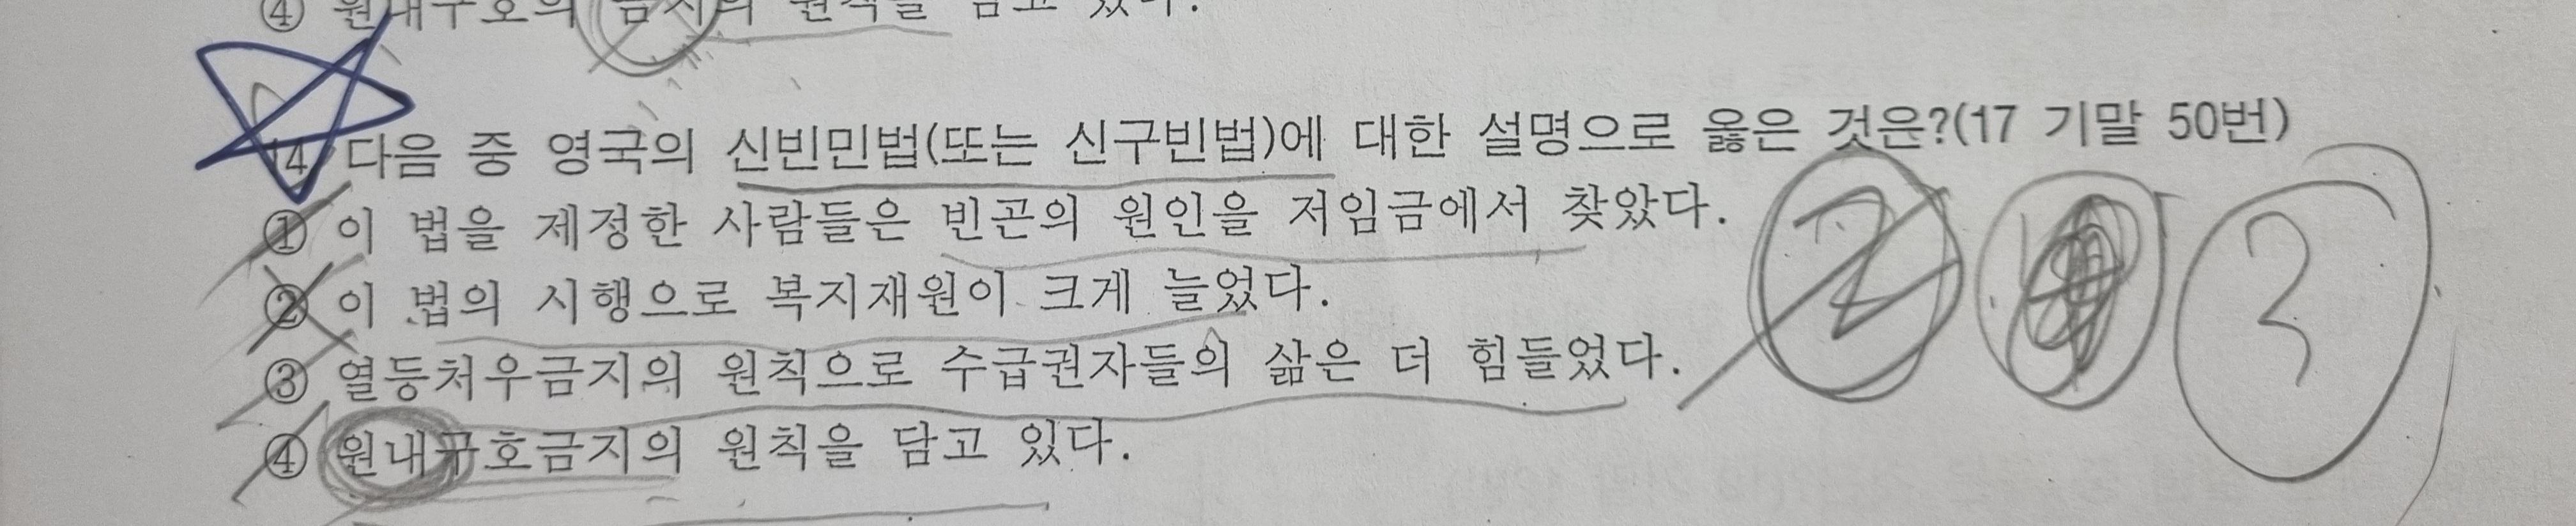 ④ 원내구호의 금지의 원칙을 담고 있다.
14 다음 중 영국의 신빈민법(또는 신구빈법)에 대한 설명으로 옳은 것은?(17 기말 50번)
① 이 법을 제정한 사람들은 빈곤의 원인을 저임금에서 찾았다.
② 이 법의 시행으로 복지재원이 크게 늘었다.
③ 열등처우금지의 원칙으로 수급권자들의 삶은 더 힘들었다.
④ 원내구호금지의 원칙을 담고 있다.
2 3